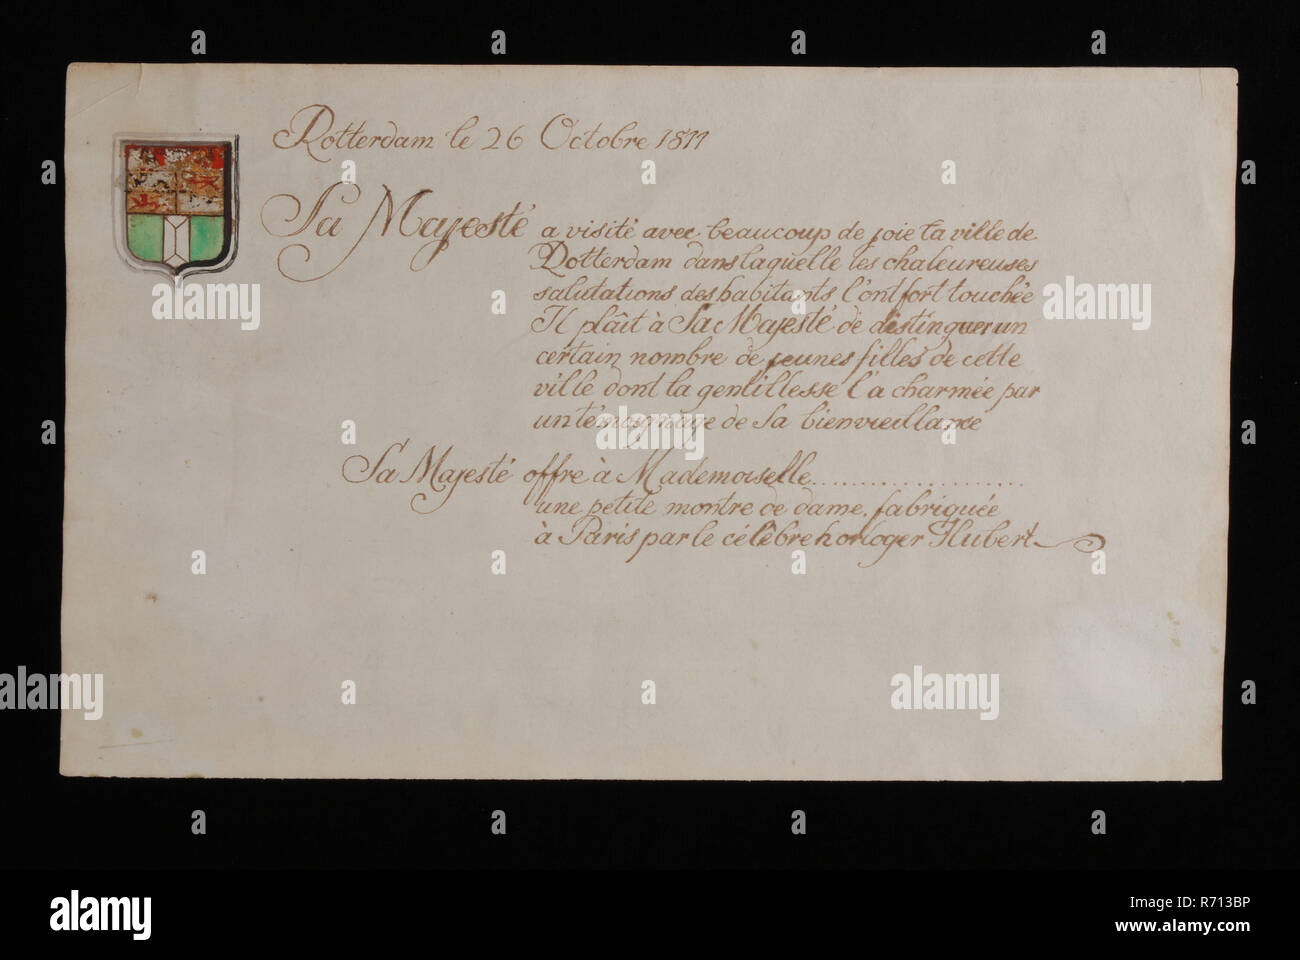 Rotterdam le 26 Octobre 1811
Sa Majesté a visité avec beaucoup de joie la ville de
Rotterdam dans laquelle les chaleureuses
salutations des habitants l'ont fort touchée
Il plâit à Sa Majesté de distinguer un
certain nombre de jeunes filles de cette
ville dont la gentillesse l'a charmée par
un témoignage de Sa bienvieillance
Sa Majesté offre à Mademoiselle....................
une petite montre de dame, fabriquée
à Paris par le célèbre horloger Hubert
alamy
alamy
alamy
alamy
alamy
alamy
alamy
alamy
Image ID: R713BP
www.alamy.com